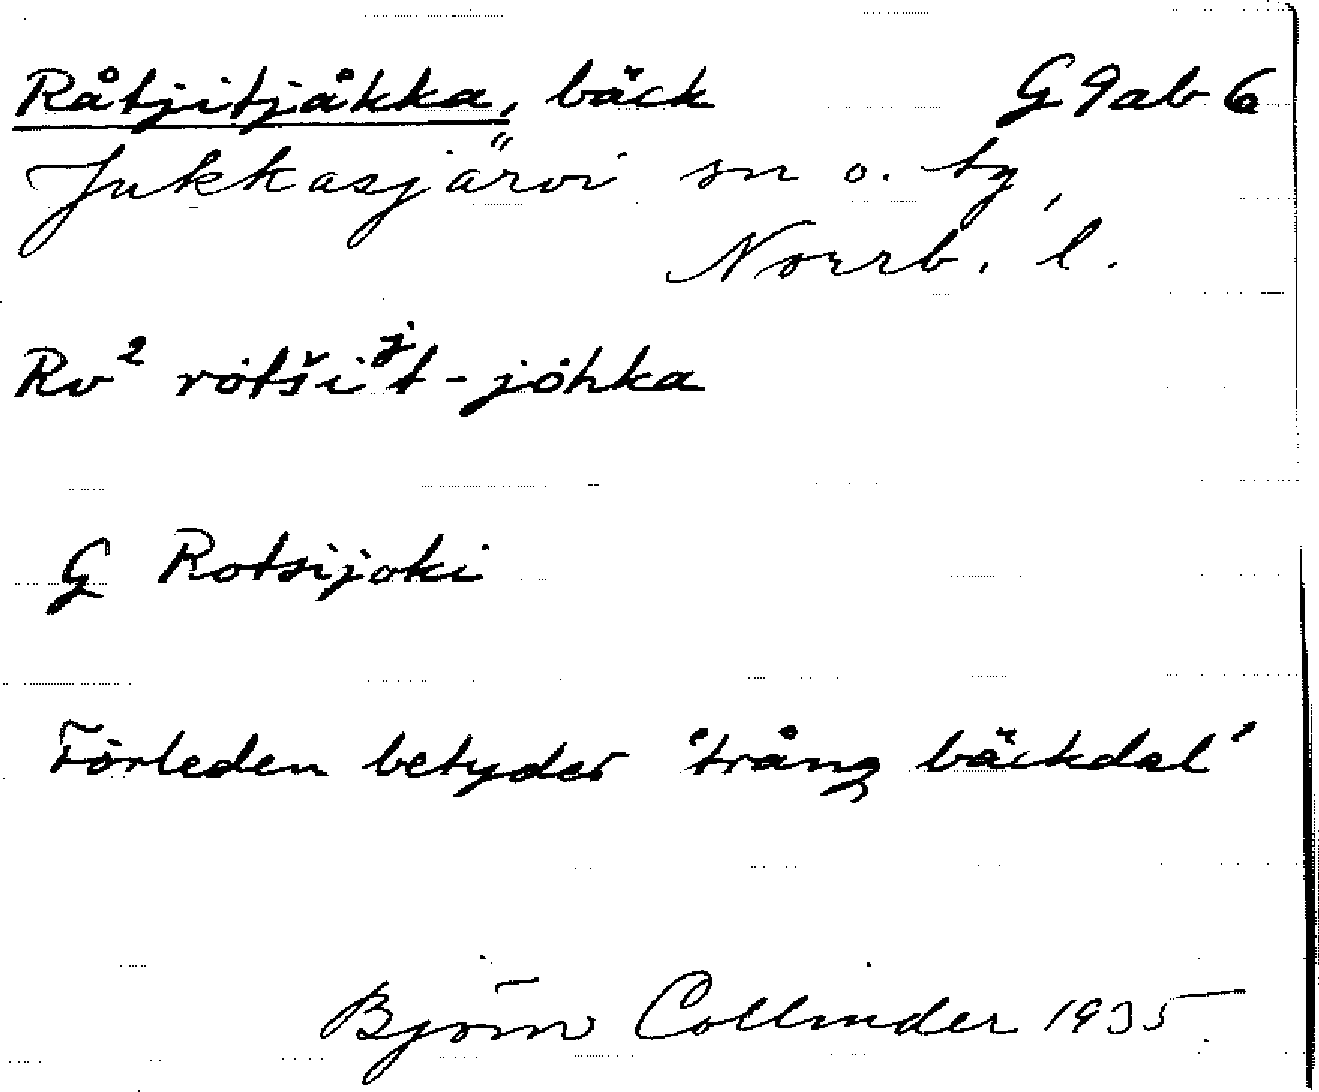 Råtjitjåkka, bäck G 9ab 6
Jukkasjärvi sn o. tg,
Norrb. l.
Rv² rȯtši ʲt-jȯhka
G Rotsijoki
Förleden betyder 'trång bäckdal'
Björn Collinder 1935